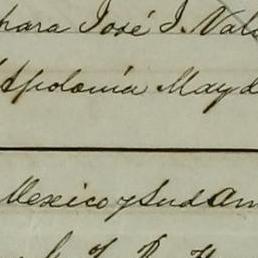 para José I. Val
Apolonia May d
Mexico y Sud Am